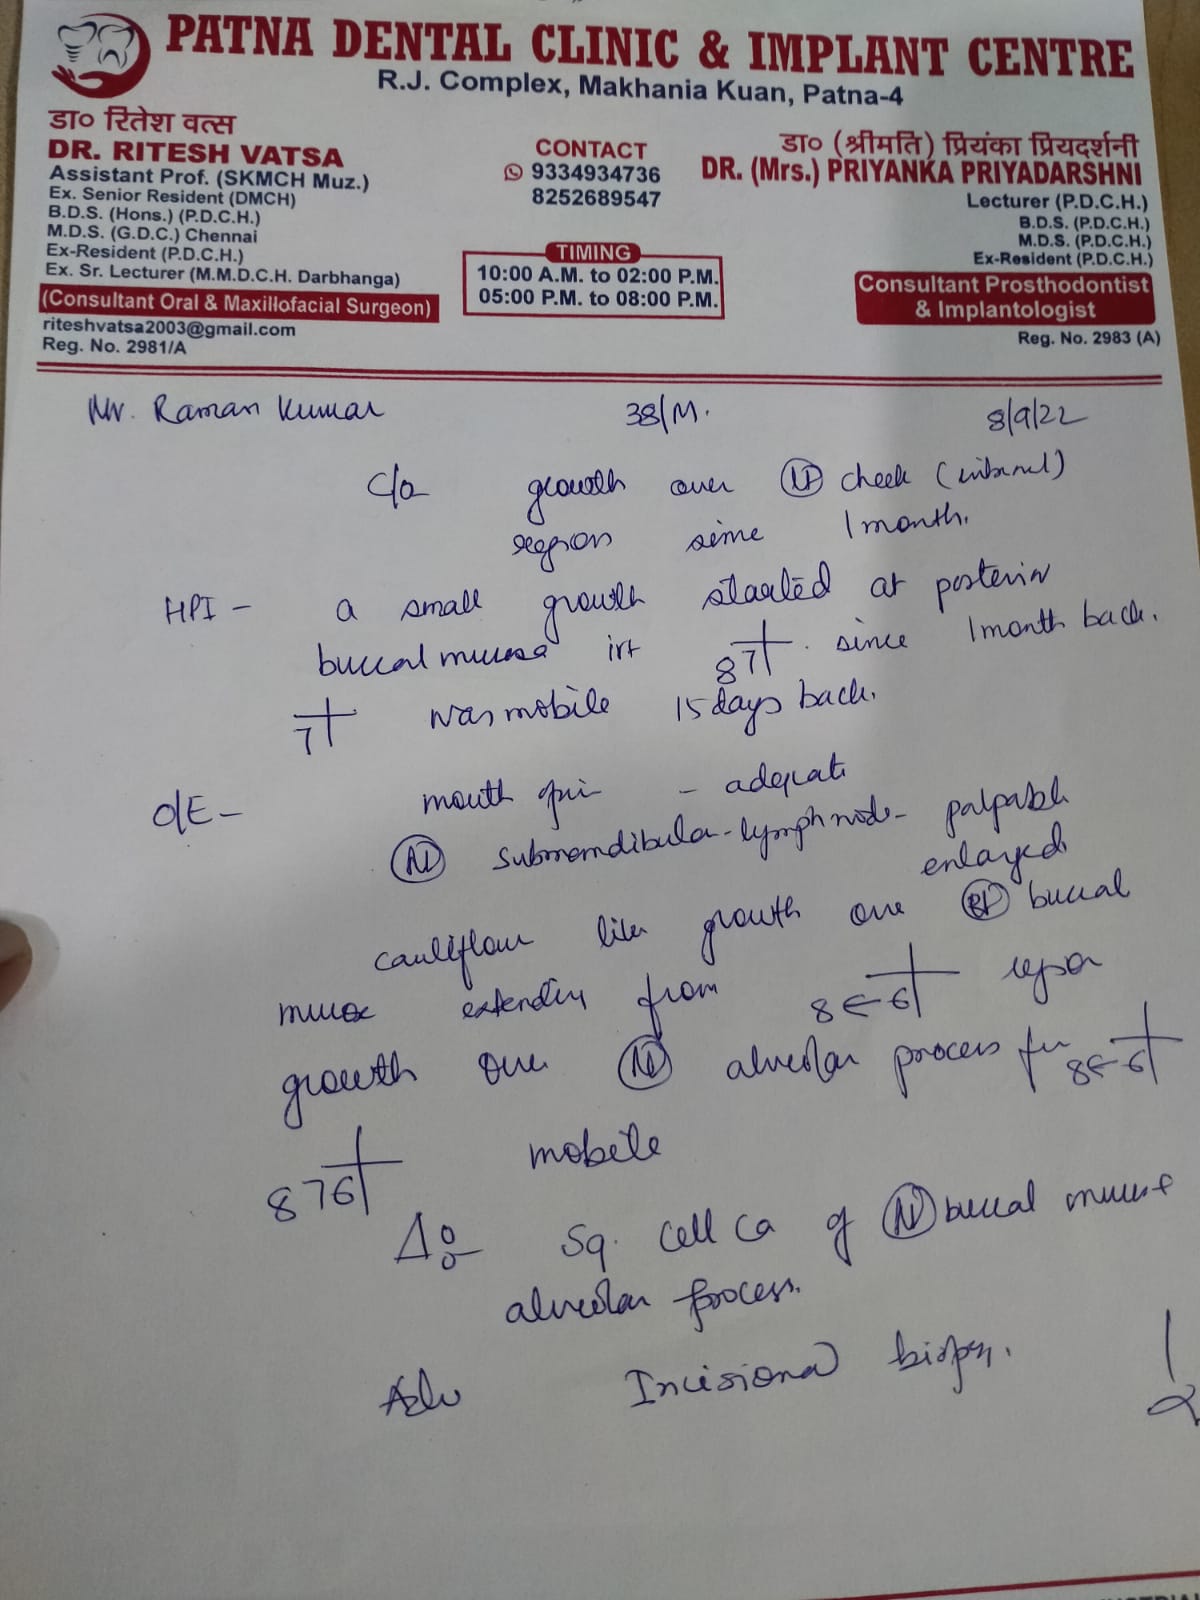 PATNA DENTAL CLINIC & IMPLANT CENTRE
R.J. Complex, Makhania Kuan, Patna-4
डा० रितेश वत्स
DR. RITESH VATSA
Assistant Prof. (SKMCH Muz.)
Ex. Senior Resident (DMCH)
B.D.S. (Hons.) (P.D.C.H.)
M.D.S. (G.D.C.) Chennai
Ex-Resident (P.D.C.H.)
Ex. Sr. Lecturer (M.M.D.C.H. Darbhanga)
(Consultant Oral & Maxillofacial Surgeon)
riteshvatsa2003@gmail.com
Reg. No. 2981/A
CONTACT
9334934736
8252689547
TIMING
10:00 A.M. to 02:00 P.M.
05:00 P.M. to 08:00 P.M.
डा० (श्रीमति) प्रियंका प्रियदर्शनी
DR. (Mrs.) PRIYANKA PRIYADARSHNI
Lecturer (P.D.C.H.)
B.D.S. (P.D.C.H.)
M.D.S. (P.D.C.H.)
Ex-Resident (P.D.C.H.)
Consultant Prosthodontist
& Implantologist
Reg. No. 2983 (A)
Mr. Raman Kumar 38/M. 8/9/22
c/o growth over cheek (internal)
region since 1 month.
HPI - a small growth started at posterior
buccal mucosa irt 87 . since 1 month back.
7 was mobile 15 days back.
O/E - mouth - adequate
submandibular lymph node - palpable
enlarged
cauliflour like growth over buccal
extending from 8 ← 6 region
growth over alveolar process 8 ← 6
876 mobile
Δ Sq. cell ca of buccal
alveolar process.
Adv Incisional biopsy.